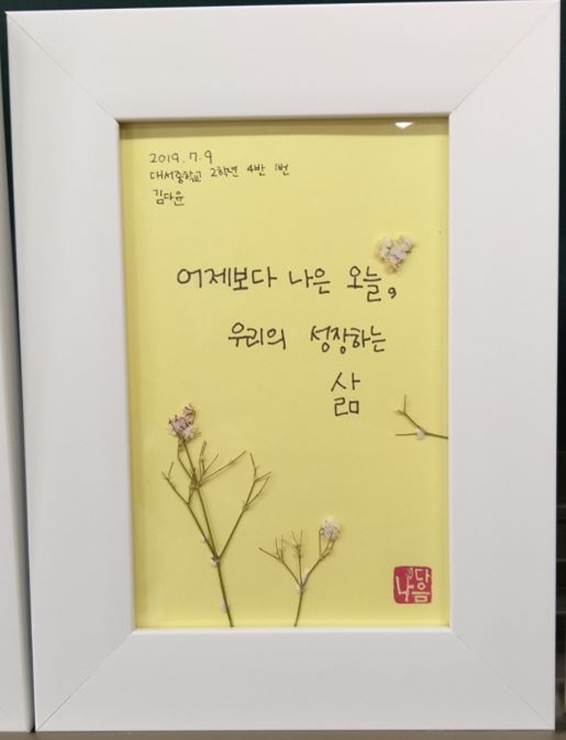 2019.7.9
대서중학교 2학년 4반 1번
김다윤
어제보다 나은 오늘,
우리의 성장하는
삶
나다움